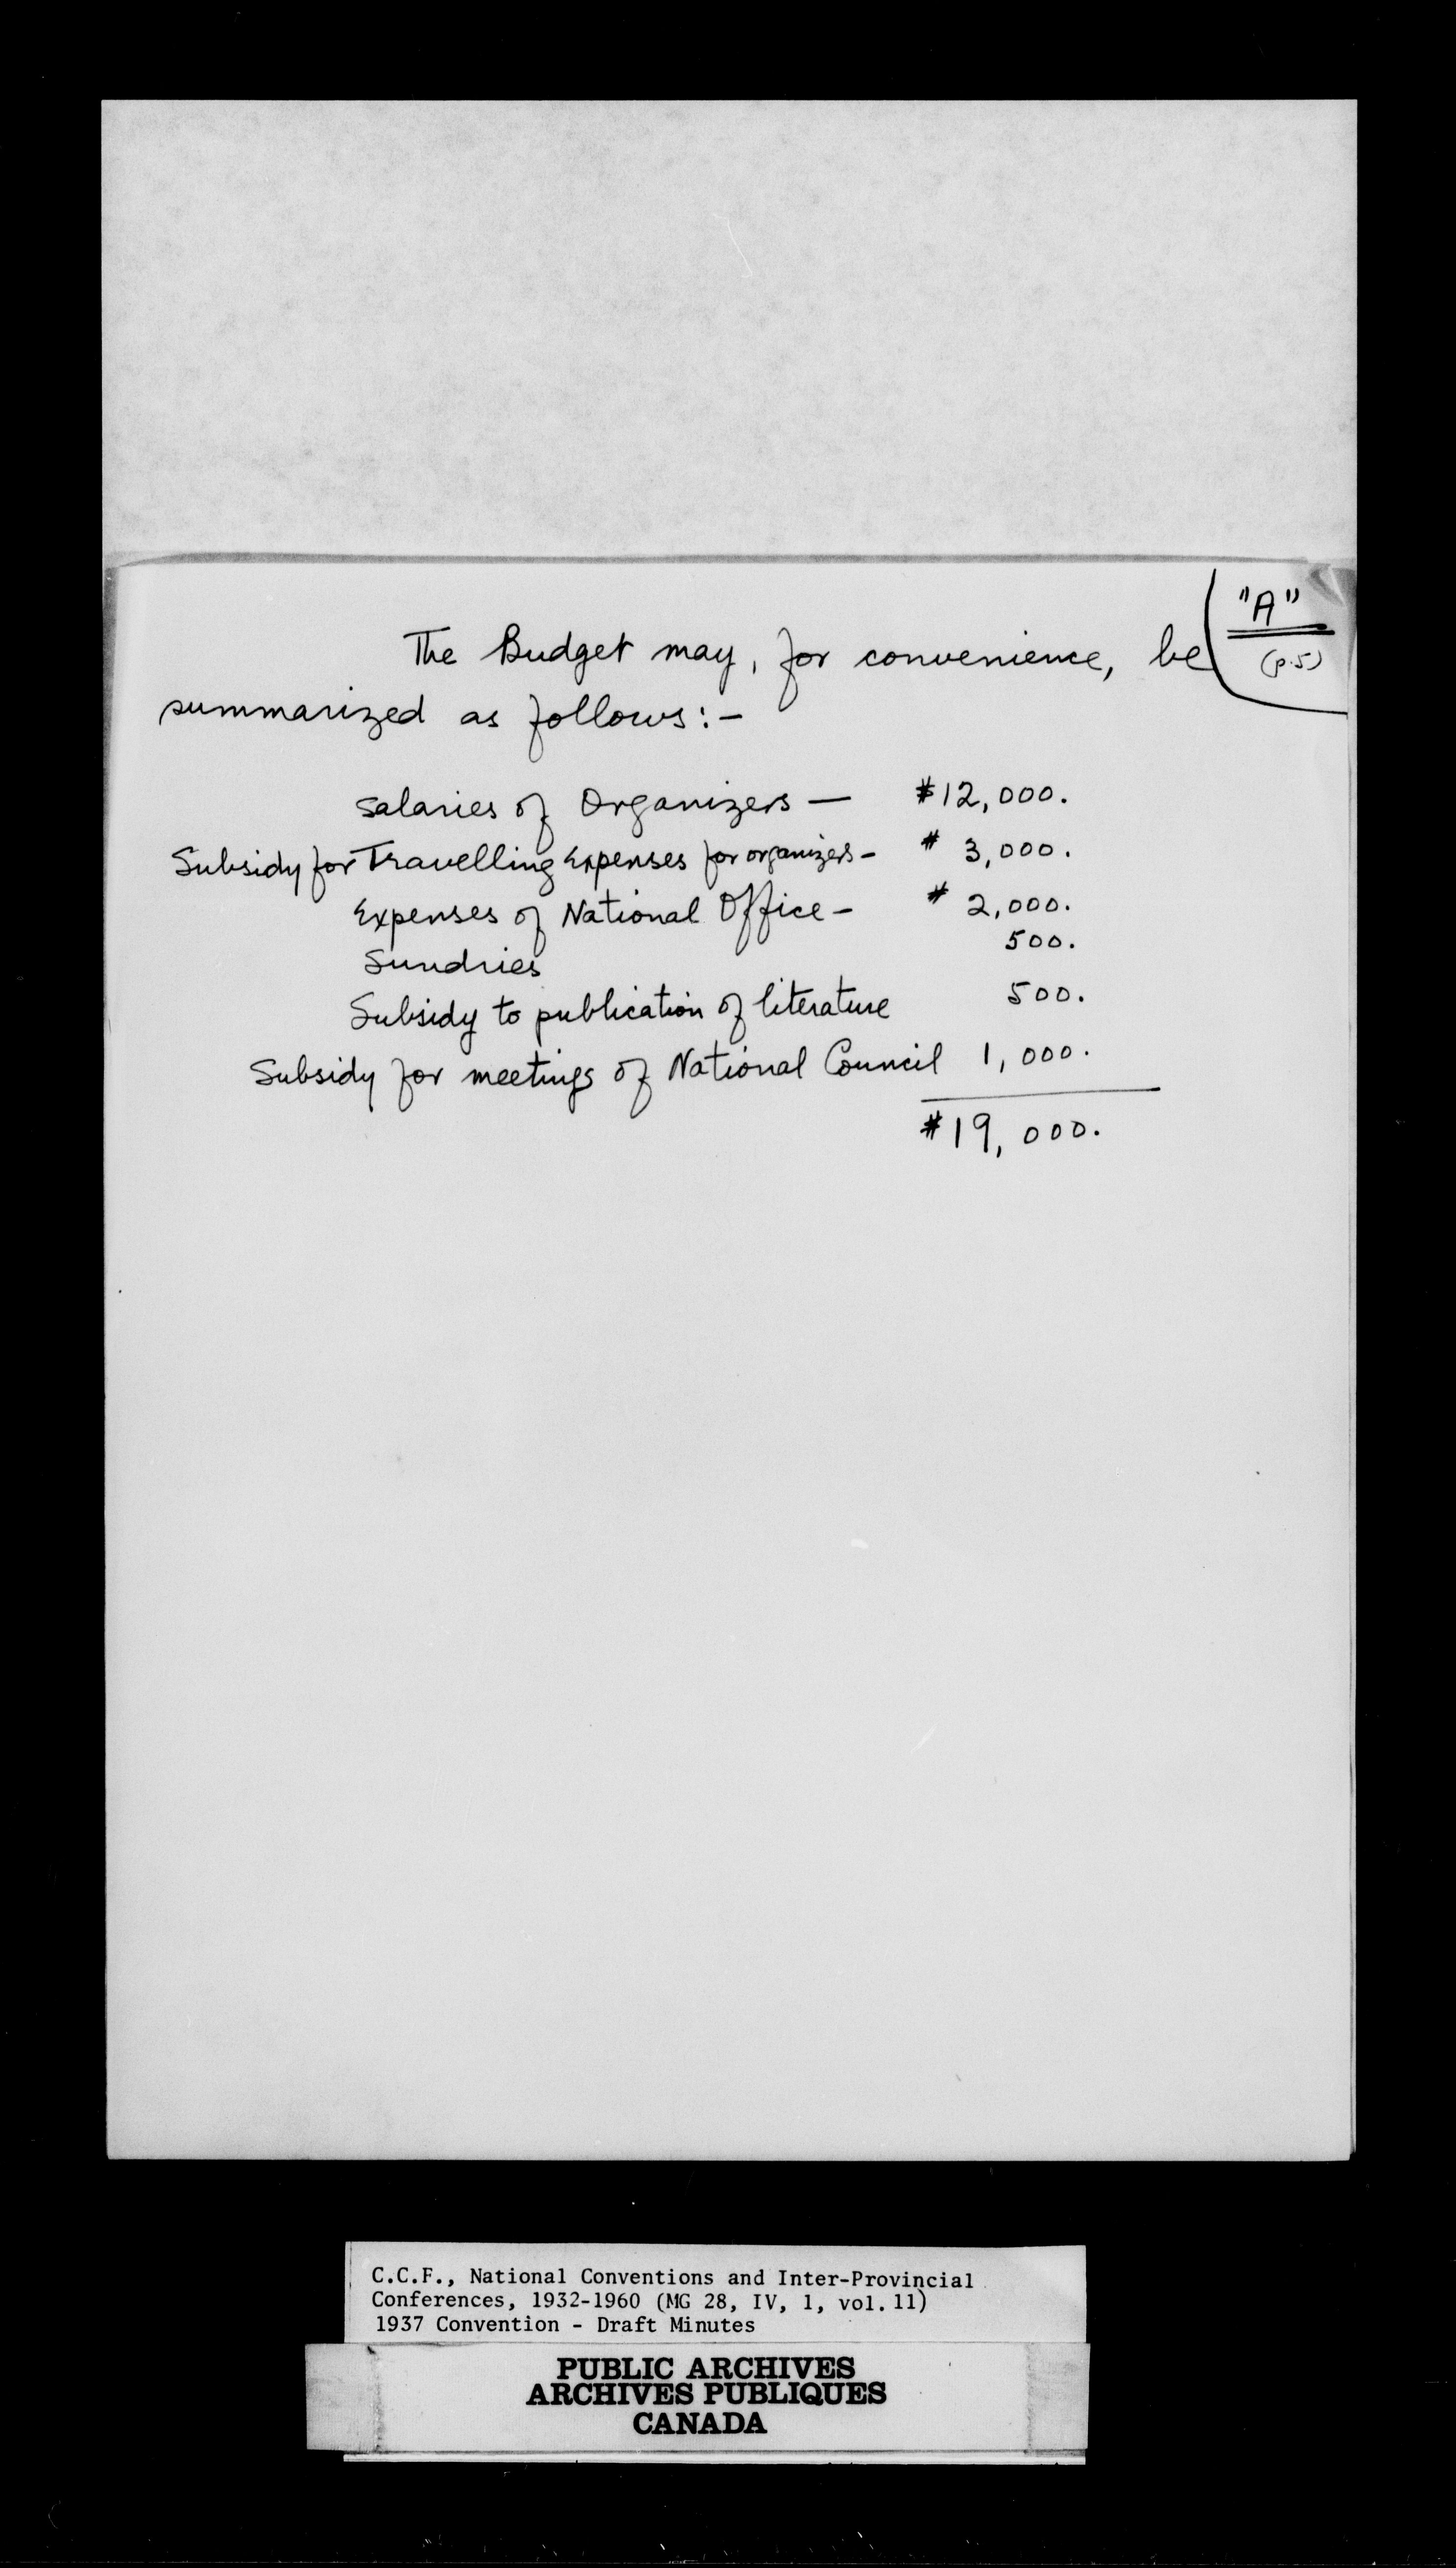 "A"
(p.5)
The Budget may, for convenience, be
summarized as follows:-
Salaries of Organizers — $12,000.
Subsidy for Travelling Expenses for organizers - $ 3,000.
Expenses of National Office - $ 2,000.
Sundries 500.
Subsidy to publication of literature 500.
Subsidy for meetings of National Council 1,000.
$19,000.
C.C.F., National Conventions and Inter-Provincial
Conferences, 1932-1960 (MG 28, IV, 1, vol. 11)
1937 Convention - Draft Minutes
PUBLIC ARCHIVES
ARCHIVES PUBLIQUES
CANADA